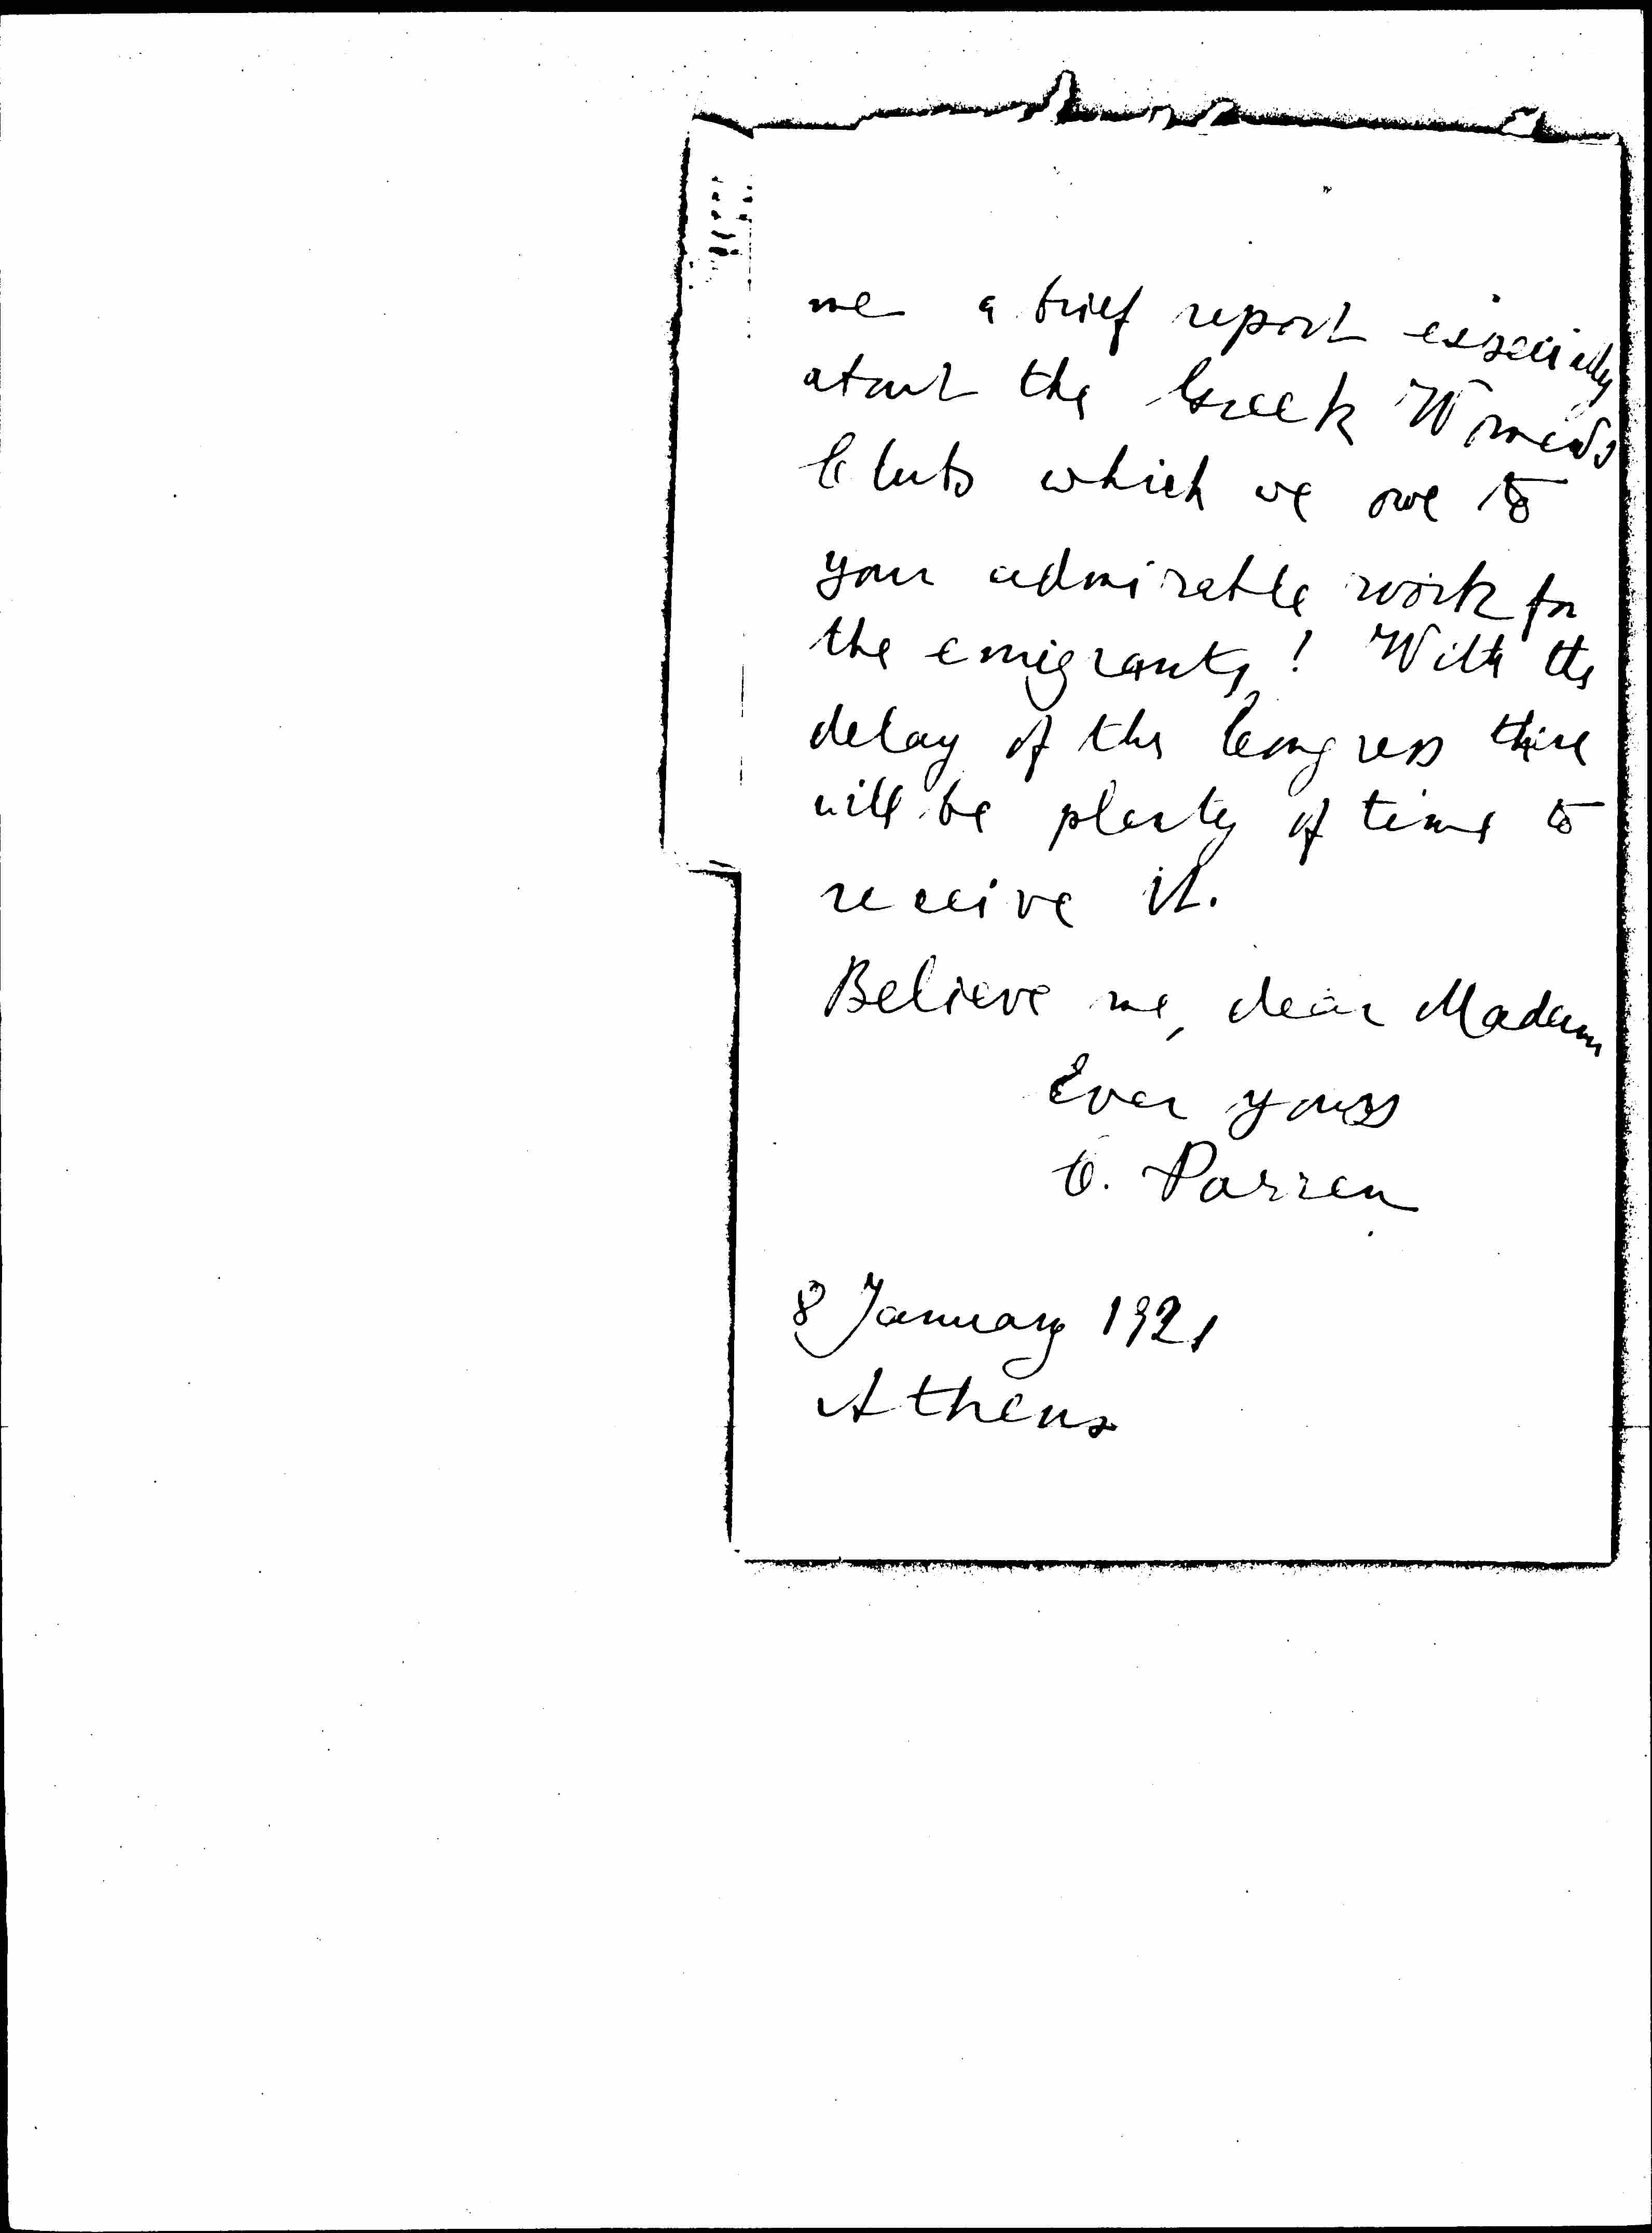 me a brief report especially
about the Greek Women's
Clubs which we owe to
your admirable work for
the emigrants! With the
delay of the Congress there
will be plenty of time to
receive it.
Believe me, dear Madam
Ever yours
C. Parren
8 January 1921
Athens